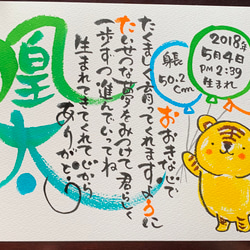 2018年
5月4日
PM 2:39
生まれ
身長
50.2
cm
おおきな心で
たくましく育ってくれますように
たいせつな夢をみつけて君らしく
一歩ずつ進んでいってね
生まれてきてくれて心から
ありがとう
太